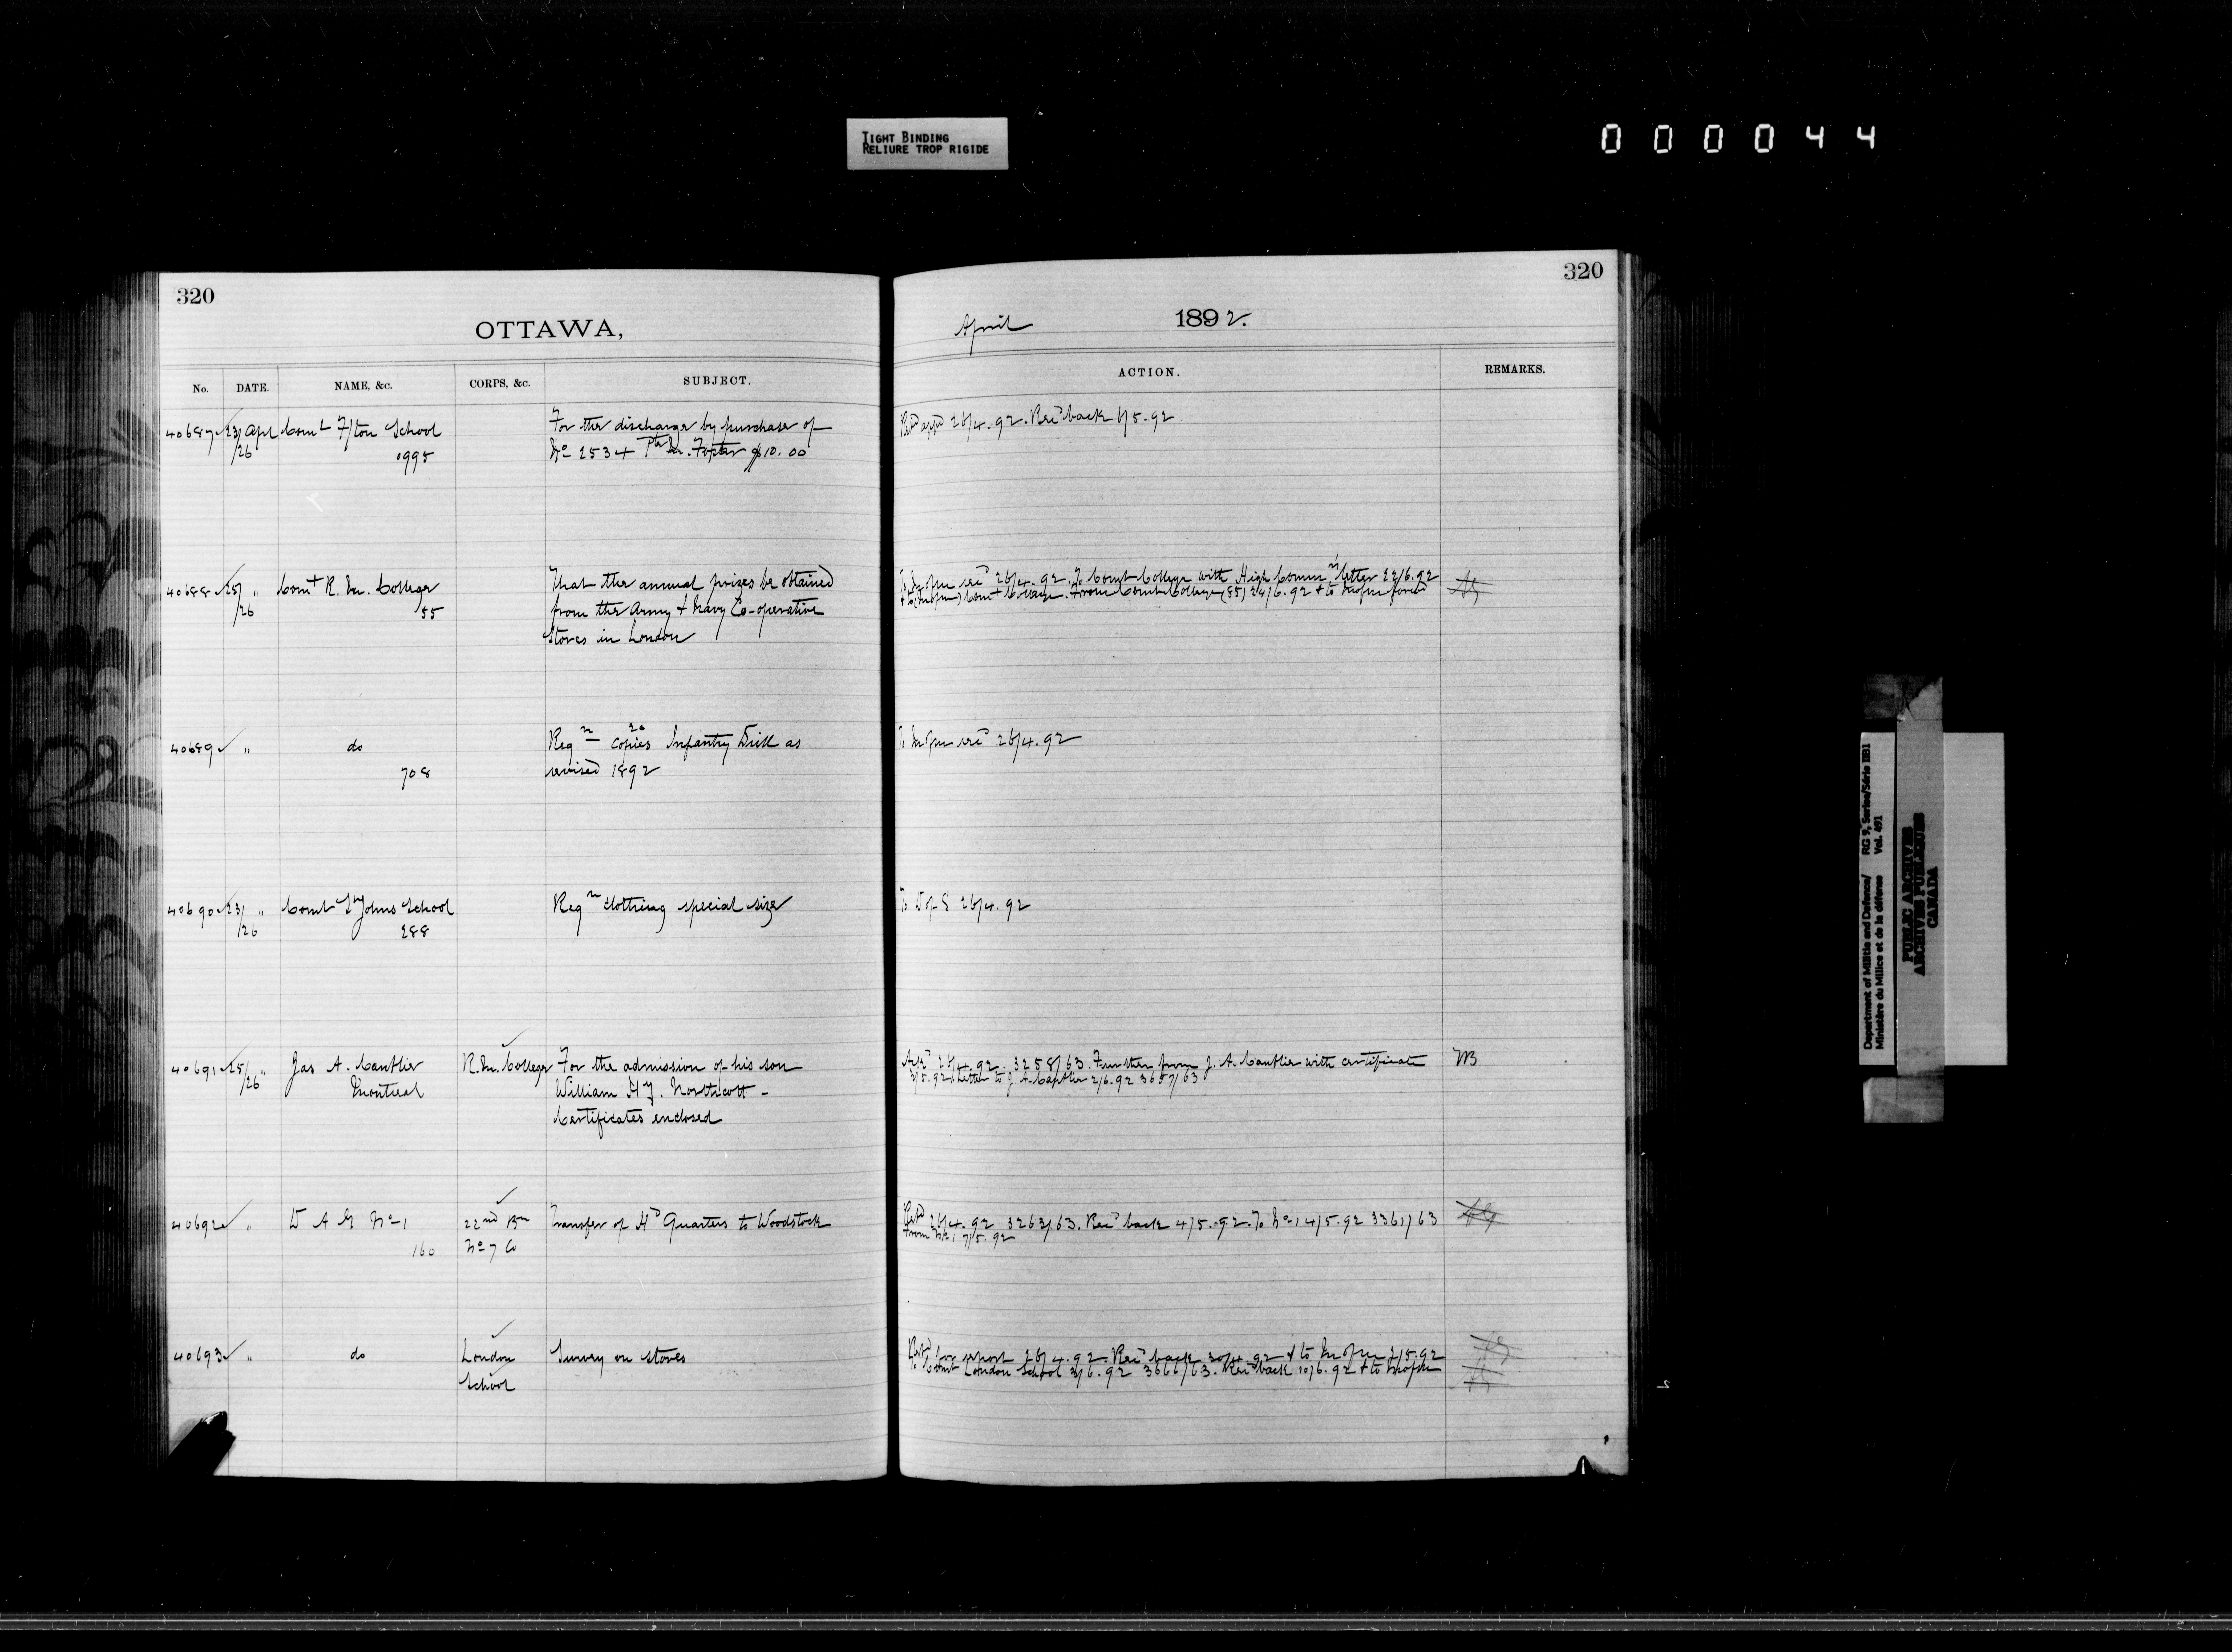 TIGHT BINDING
RELIURE TROP RIGIDE
000044
320
OTTAWA,
No. DATE. NAME, &c. CORPS, &c. SUBJECT.
40687 23/ Apl Comt F/ton School For the discharge by purchase of
/26 995 No 2534 Pte $10.00
40688 25/ " Comt R. M. College That the annual prizes be obtained
/26 55 from the Army & Navy Co-operative
Stores in London
40689 " do Reqn 20 copies Infantry Drill as
708 revised 1892
40690 23/ " Comt St Johns School Reqn clothing special size
/26 288
40691 25/ " Jas A. Cantlie R. M. College For the admission of his son
/26 Montreal William Hy. Northcott -
Certificates enclosed
40692 " D A G No 1 22nd Bn Transfer of Hd Quarters to Woodstock
160 No 7 Co
40693 " do London Survey on stores
School
320
April 1892.
ACTION. REMARKS.
Retd appd 26/4.92. Recd back 6/5.92
To M of M recd 26/4.92. To Comt College with High Commrs letter 22/6.92
Comt College. From Comt College (85) 24/6.92 & to M of M
To M of M recd 26/4.92
To D of S 26/4.92
26/4.92. 3258/63. Further from J. A. Cantlie with certificate
/5.92. Letter to J. A. Cantlie 2/6.92 3657/63
Retd 26/4.92 3263/63. Recd back 4/5.92. To No 1 4/5.92 3361/63
From No 1 7/5.92
Retd for report 26/4.92. Recd back 30/4.92 & to M of M 2/5.92
To Comt London School 3/6.92 3666/63. Recd back 10/6.92 & to M of M
Department of Militia and Defence/ RG 9, Series/Série IIB1
Ministère du Milice et de la défense Vol. 491
PUBLIC ARCHIVES
ARCHIVES PUBLIQUES
CANADA